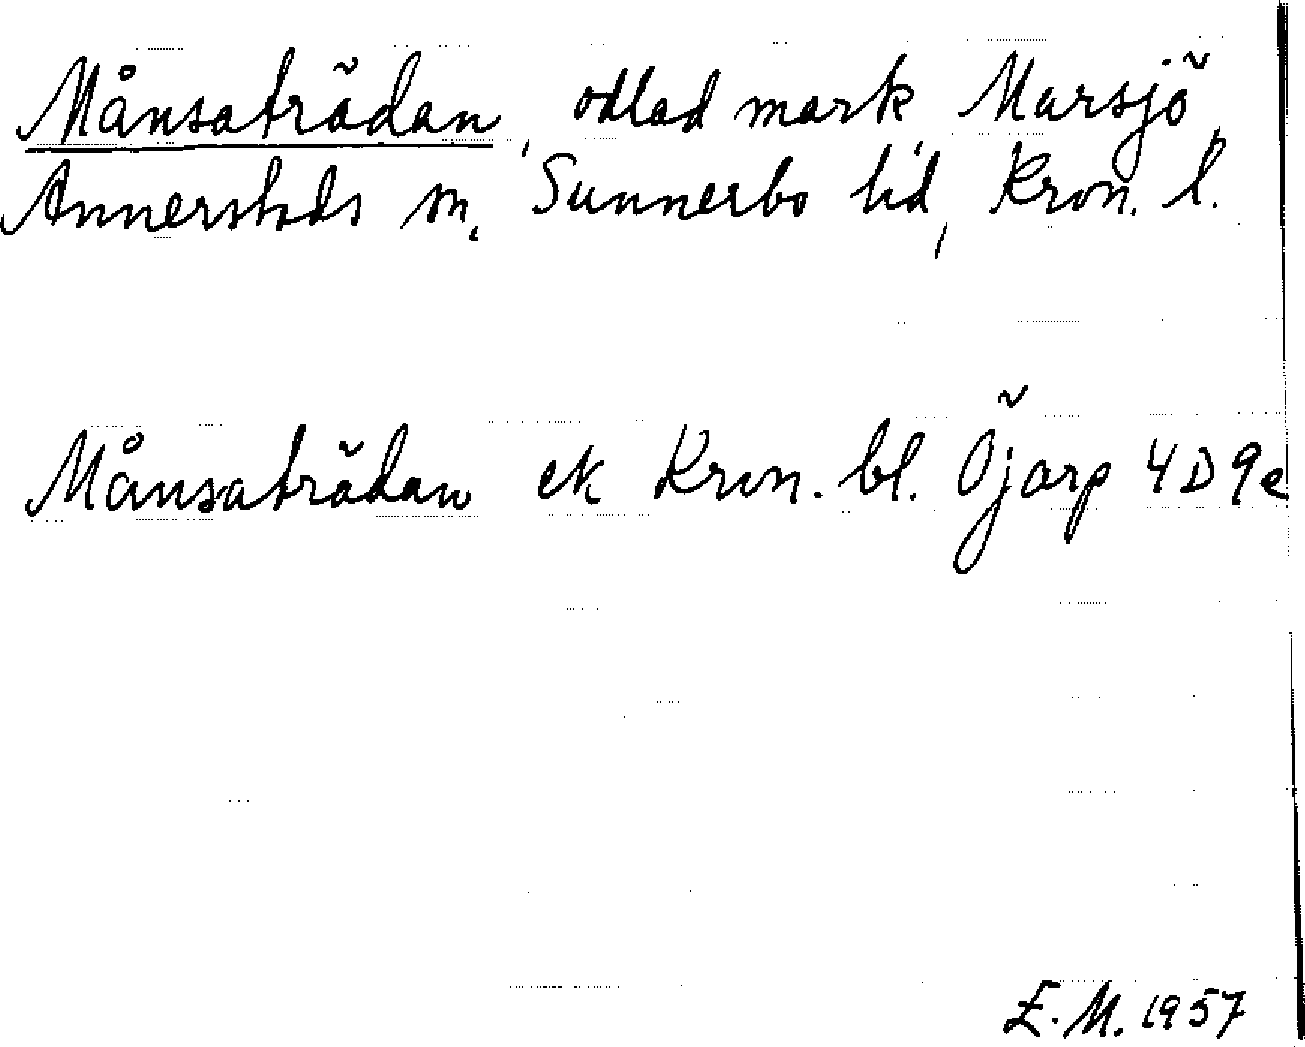 Månsaträdan, odlad mark, Marsjö,
Annerstads sn, Sunnerbo hd, Kron. l.
Månsaträdan ek Kron. bl. Öjarp 4D9e
E. M. 1957